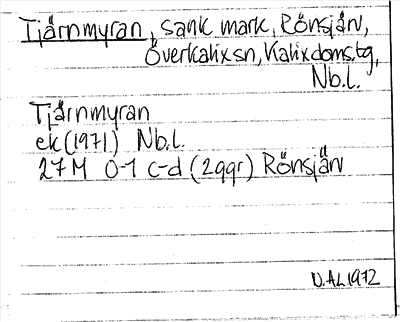 Tjärnmyran, sank mark, Rönsjärv,
Överkalix sn, Kalix doms.tg,
Nb.l.
Tjärnmyran
ek (1971) Nb.l.
27M 0-1 c-d (2ggr) Rönsjärv
U.AL.1972